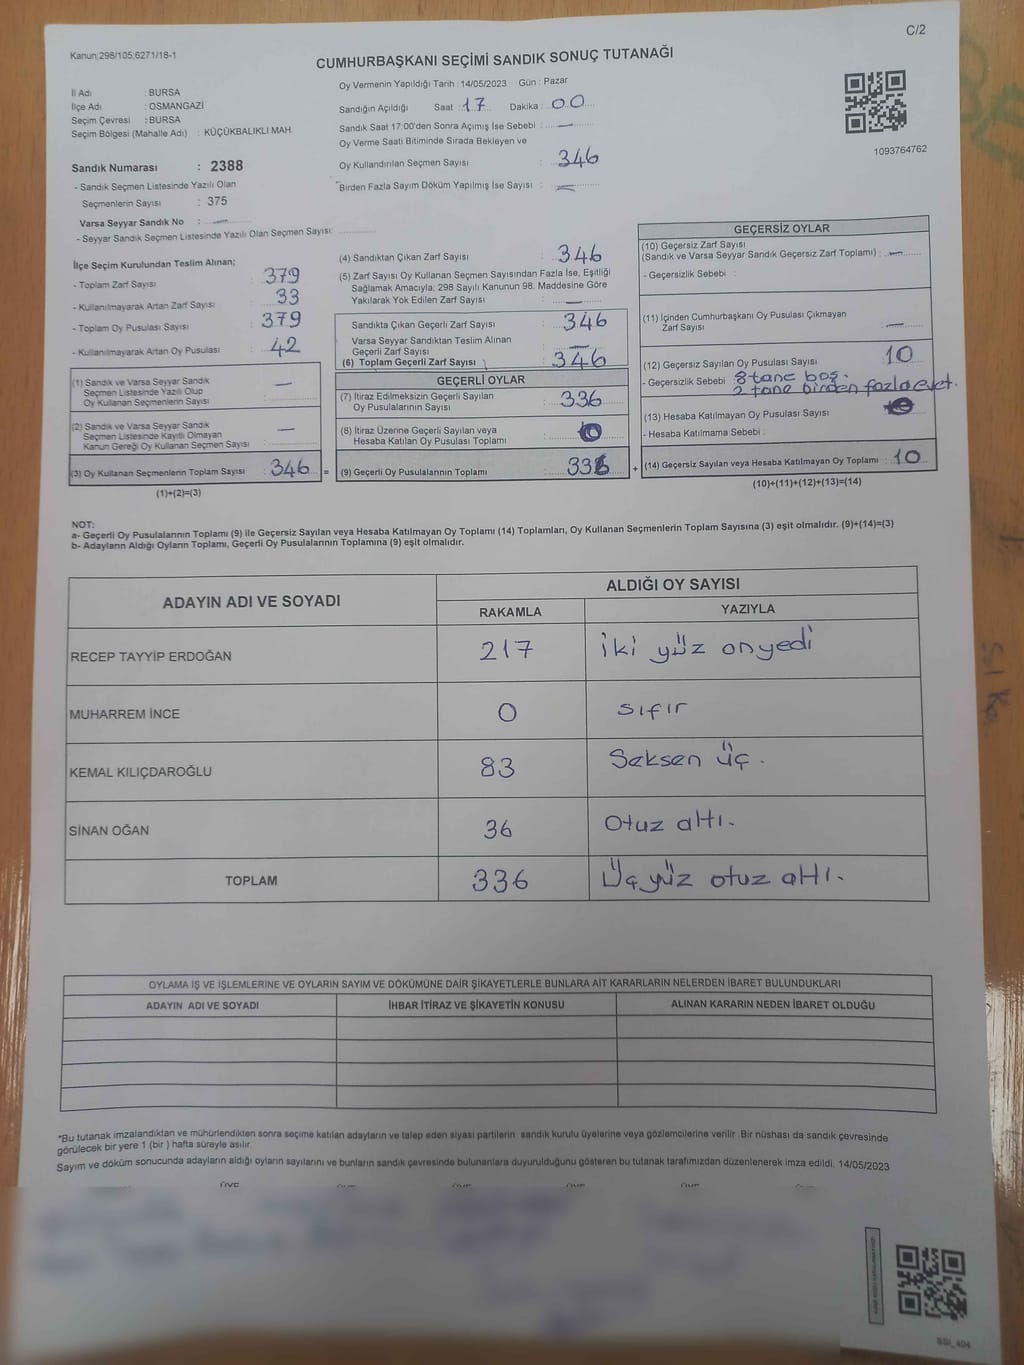 C/2
Kanun:298/105;6271/18-1
CUMHURBAŞKANI SEÇİMİ SANDIK SONUÇ TUTANAĞI
İl Adı : BURSA
İlçe Adı : OSMANGAZİ
Seçim Çevresi : BURSA
Seçim Bölgesi (Mahalle Adı) : KÜÇÜKBALIKLI MAH.
Sandık Numarası : 2388
- Sandık Seçmen Listesinde Yazılı Olan
Seçmenlerin Sayısı : 375
Varsa Seyyar Sandık No : —
- Seyyar Sandık Seçmen Listesinde Yazılı Olan Seçmen Sayısı:
Oy Vermenin Yapıldığı Tarih : 14/05/2023 Gün : Pazar
Sandığın Açıldığı Saat : 17 Dakika : 00
Sandık Saat 17:00'den Sonra Açımış İse Sebebi : —
Oy Verme Saati Bitiminde Sırada Bekleyen ve
Oy Kullandırılan Seçmen Sayısı : 346
Birden Fazla Sayım Döküm Yapılmış İse Sayısı : —
1093764762
İlçe Seçim Kurulundan Teslim Alınan;
- Toplam Zarf Sayısı : 379
- Kullanılmayarak Artan Zarf Sayısı : 33
- Toplam Oy Pusulası Sayısı : 379
- Kullanılmayarak Artan Oy Pusulası : 42
(1) Sandık ve Varsa Seyyar Sandık
Seçmen Listesinde Yazılı Olup
Oy Kullanan Seçmenlerin Sayısı : —
(2) Sandık ve Varsa Seyyar Sandık
Seçmen Listesinde Kayıtlı Olmayan
Kanun Gereği Oy Kullanan Seçmen Sayısı : —
(3) Oy Kullanan Seçmenlerin Toplam Sayısı : 346 =
(1)+(2)=(3)
(4) Sandıktan Çıkan Zarf Sayısı : 346
(5) Zarf Sayısı Oy Kullanan Seçmen Sayısından Fazla İse, Eşitliği
Sağlamak Amacıyla, 298 Sayılı Kanunun 98. Maddesine Göre
Yakılarak Yok Edilen Zarf Sayısı : —
Sandıkta Çıkan Geçerli Zarf Sayısı : 346
Varsa Seyyar Sandıktan Teslim Alınan
Geçerli Zarf Sayısı : —
(6) Toplam Geçerli Zarf Sayısı : 346
GEÇERLİ OYLAR
(7) İtiraz Edilmeksizin Geçerli Sayılan
Oy Pusulasının Sayısı : 336
(8) İtiraz Üzerine Geçerli Sayılan veya
Hesaba Katılan Oy Pusulası Toplamı :
(9) Geçerli Oy Pusulalarının Toplamı : 336 +
GEÇERSİZ OYLAR
(10) Geçersiz Zarf Sayısı
(Sandık ve Varsa Seyyar Sandık Geçersiz Zarf Toplamı) : —
- Geçersizlik Sebebi :
(11) İçinden Cumhurbaşkanı Oy Pusulası Çıkmayan
Zarf Sayısı : —
(12) Geçersiz Sayılan Oy Pusulası Sayısı : 10
- Geçersizlik Sebebi : 8 tane boş.
2 tane birden fazla evet.
(13) Hesaba Katılmayan Oy Pusulası Sayısı :
- Hesaba Katılmama Sebebi :
(14) Geçersiz Sayılan veya Hesaba Katılmayan Oy Toplamı : 10
(10)+(11)+(12)+(13)=(14)
NOT:
a- Geçerli Oy Pusulalarının Toplamı (9) ile Geçersiz Sayılan veya Hesaba Katılmayan Oy Toplamı (14) Toplamları, Oy Kullanan Seçmenlerin Toplam Sayısına (3) eşit olmalıdır. (9)+(14)=(3)
b- Adayların Aldığı Oyların Toplamı, Geçerli Oy Pusulalarının Toplamına (9) eşit olmalıdır.
ADAYIN ADI VE SOYADI ALDIĞI OY SAYISI
RAKAMLA YAZIYLA
RECEP TAYYİP ERDOĞAN 217 iki yüz onyedi
MUHARREM İNCE 0 sıfır
KEMAL KILIÇDAROĞLU 83 Seksen üç.
SİNAN OĞAN 36 Otuz altı.
TOPLAM 336 Üçyüz otuz altı.
OYLAMA İŞ VE İŞLEMLERİNE VE OYLARIN SAYIM VE DÖKÜMÜNE DAİR ŞİKAYETLERLE BUNLARA AİT KARARLARIN NELERDEN İBARET BULUNDUKLARI
ADAYIN ADI VE SOYADI İHBAR İTİRAZ VE ŞİKAYETİN KONUSU ALINAN KARARIN NEDEN İBARET OLDUĞU
*Bu tutanak imzalandıktan ve mühürlendikten sonra seçime katılan adayların ve talep eden siyasi partilerin sandık kurulu üyelerine veya gözlemcilerine verilir. Bir nüshası da sandık çevresinde
görülecek bir yere 1 (bir ) hafta süreyle asılır.
Sayım ve döküm sonucunda adayların aldığı oyların sayılarını ve bunların sandık çevresinde bulunanlara duyurulduğunu gösteren bu tutanak tarafımızdan düzenlenerek imza edildi. 14/05/2023
ÜYE ÜYE ÜYE ÜYE ÜYE